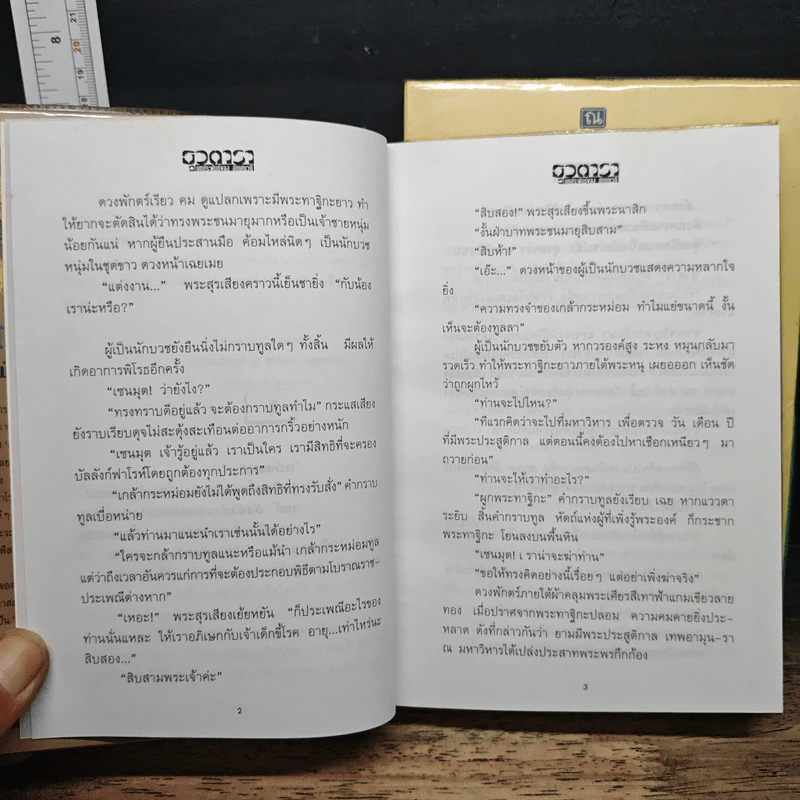 8
20
21
ณ
ดวงพักตร์เรียว คม ดูแปลกเพราะมีพระทาฐิกะยาว ทำ
ให้ยากจะตัดสินได้ว่าทรงพระชนมายุมากหรือเป็นเจ้าชายหนุ่ม
น้อยกันแน่ หากผู้ยืนประสานมือ ค้อมไหล่นิดๆ เป็นนักบวช
หนุ่มในชุดขาว ดวงหน้าเฉยเมย
“แต่งงาน...” พระสุรเสียงคราวนี้เย็นชายิ่ง “กับน้อง
เราน่ะหรือ?”
ผู้เป็นนักบวชยังยืนนิ่งไม่กราบทูลใดๆ ทั้งสิ้น มีผลให้
เกิดอาการพิโรธอีกครั้ง
“เซนมุต! ว่ายังไง?”
“ทรงทราบดีอยู่แล้ว จะต้องกราบทูลทำไม” กระแสเสียง
ยังราบเรียบดุจไม่สะดุ้งสะเทือนต่ออาการกริ้วอย่างหนัก
“เซนมุต เจ้ารู้อยู่แล้ว เราเป็นใคร เรามีสิทธิที่จะครอง
บัลลังก์ฟาโรห์โดยถูกต้องทุกประการ”
“เกล้ากระหม่อมยังไม่ได้พูดถึงสิทธิที่ทรงรับสั่ง” คำกราบ
ทูลเบื่อหน่าย
“แล้วท่านมาแนะนำเราเช่นนั้นได้อย่างไร”
“ใครจะกล้ากราบทูลแนะหรือแม้นำ เกล้ากระหม่อมทูล
แต่ว่าถึงเวลาอันควรแก่การที่จะต้องประกอบพิธีตามโบราณราช-
ประเพณีต่างหาก”
“เหอะ!” พระสุรเสียงเย้ยหยัน “ก็ประเพณีอะไรของ
ท่านนั่นแหละ ให้เราอภิเษกกับเจ้าเด็กขี้โรค อายุ...เท่าไหร่นะ
สิบสอง...”
“สิบสามพระเจ้าค่ะ”
2
“สิบสอง!” พระสุรเสียงขึ้นพระนาสิก
“งั้นฝ่าบาทพระชนมายุสิบสาม”
“สิบห้า!”
“เอ๊ะ...” ดวงหน้าของผู้เป็นนักบวชแสดงความหลากใจ
ยิ่ง
“ความทรงจำของเกล้ากระหม่อม ทำไมแย่ขนาดนี้ งั้น
เห็นจะต้องทูลลา”
ผู้เป็นนักบวชขยับตัว หากวรองค์สูง ระหง หมุนกลับมา
รวดเร็ว ทำให้พระทาฐิกะยาวภายใต้พระหนุ เผยอออก เห็นชัด
ว่าถูกผูกไหว้
“ท่านจะไปไหน?”
“ทีแรกคิดว่าจะไปที่มหาวิหาร เพื่อตรวจ วัน เดือน ปี
ที่มีพระประสูติกาล แต่ตอนนี้คงต้องไปหาเชือกเหนียวๆ มา
ถวายก่อน”
“ท่านจะให้เราทำอะไร?”
“ผูกพระทาฐิกะ” คำกราบทูลยังเรียบ เฉย หากแววตา
ระยิบ สิ้นคำกราบทูล หัตถ์แห่งผู้ที่เพิ่งรู้พระองค์ ก็กระชาก
พระทาฐิกะ โยนลงบนพื้นหิน
“เซนมุต! เราน่าจะฆ่าท่าน”
“ขอให้ทรงคิดอย่างนี้เรื่อยๆ แต่อย่าเพิ่งฆ่าจริง”
ดวงพักตร์ภายใต้ผ้าคลุมพระเศียรสีเทาฟ้าแกมเขียวลาย
ทอง เมื่อปราศจากพระทาฐิกะปลอม ความคมคายยิ่งประ-
หลาด ดังที่กล่าวกันว่า ยามมีพระประสูติกาล เทพอามุน-รา
ณ มหาวิหารได้เปล่งประสาทพระพรกึกก้อง
3